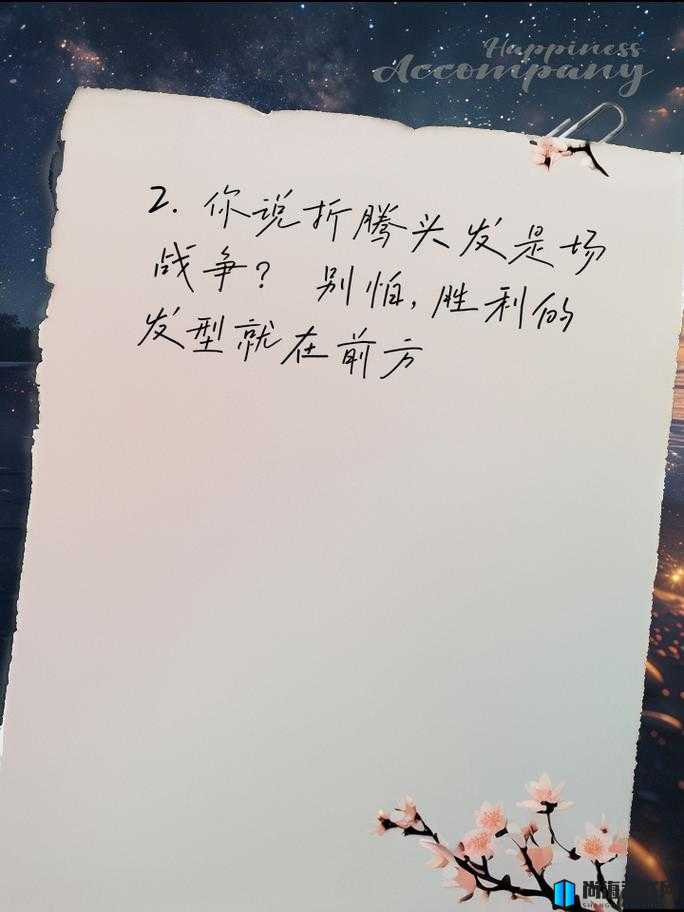 Happiness
Accompany
2. 你说折腾头发是场
战争? 别怕,胜利的
发型就在前方